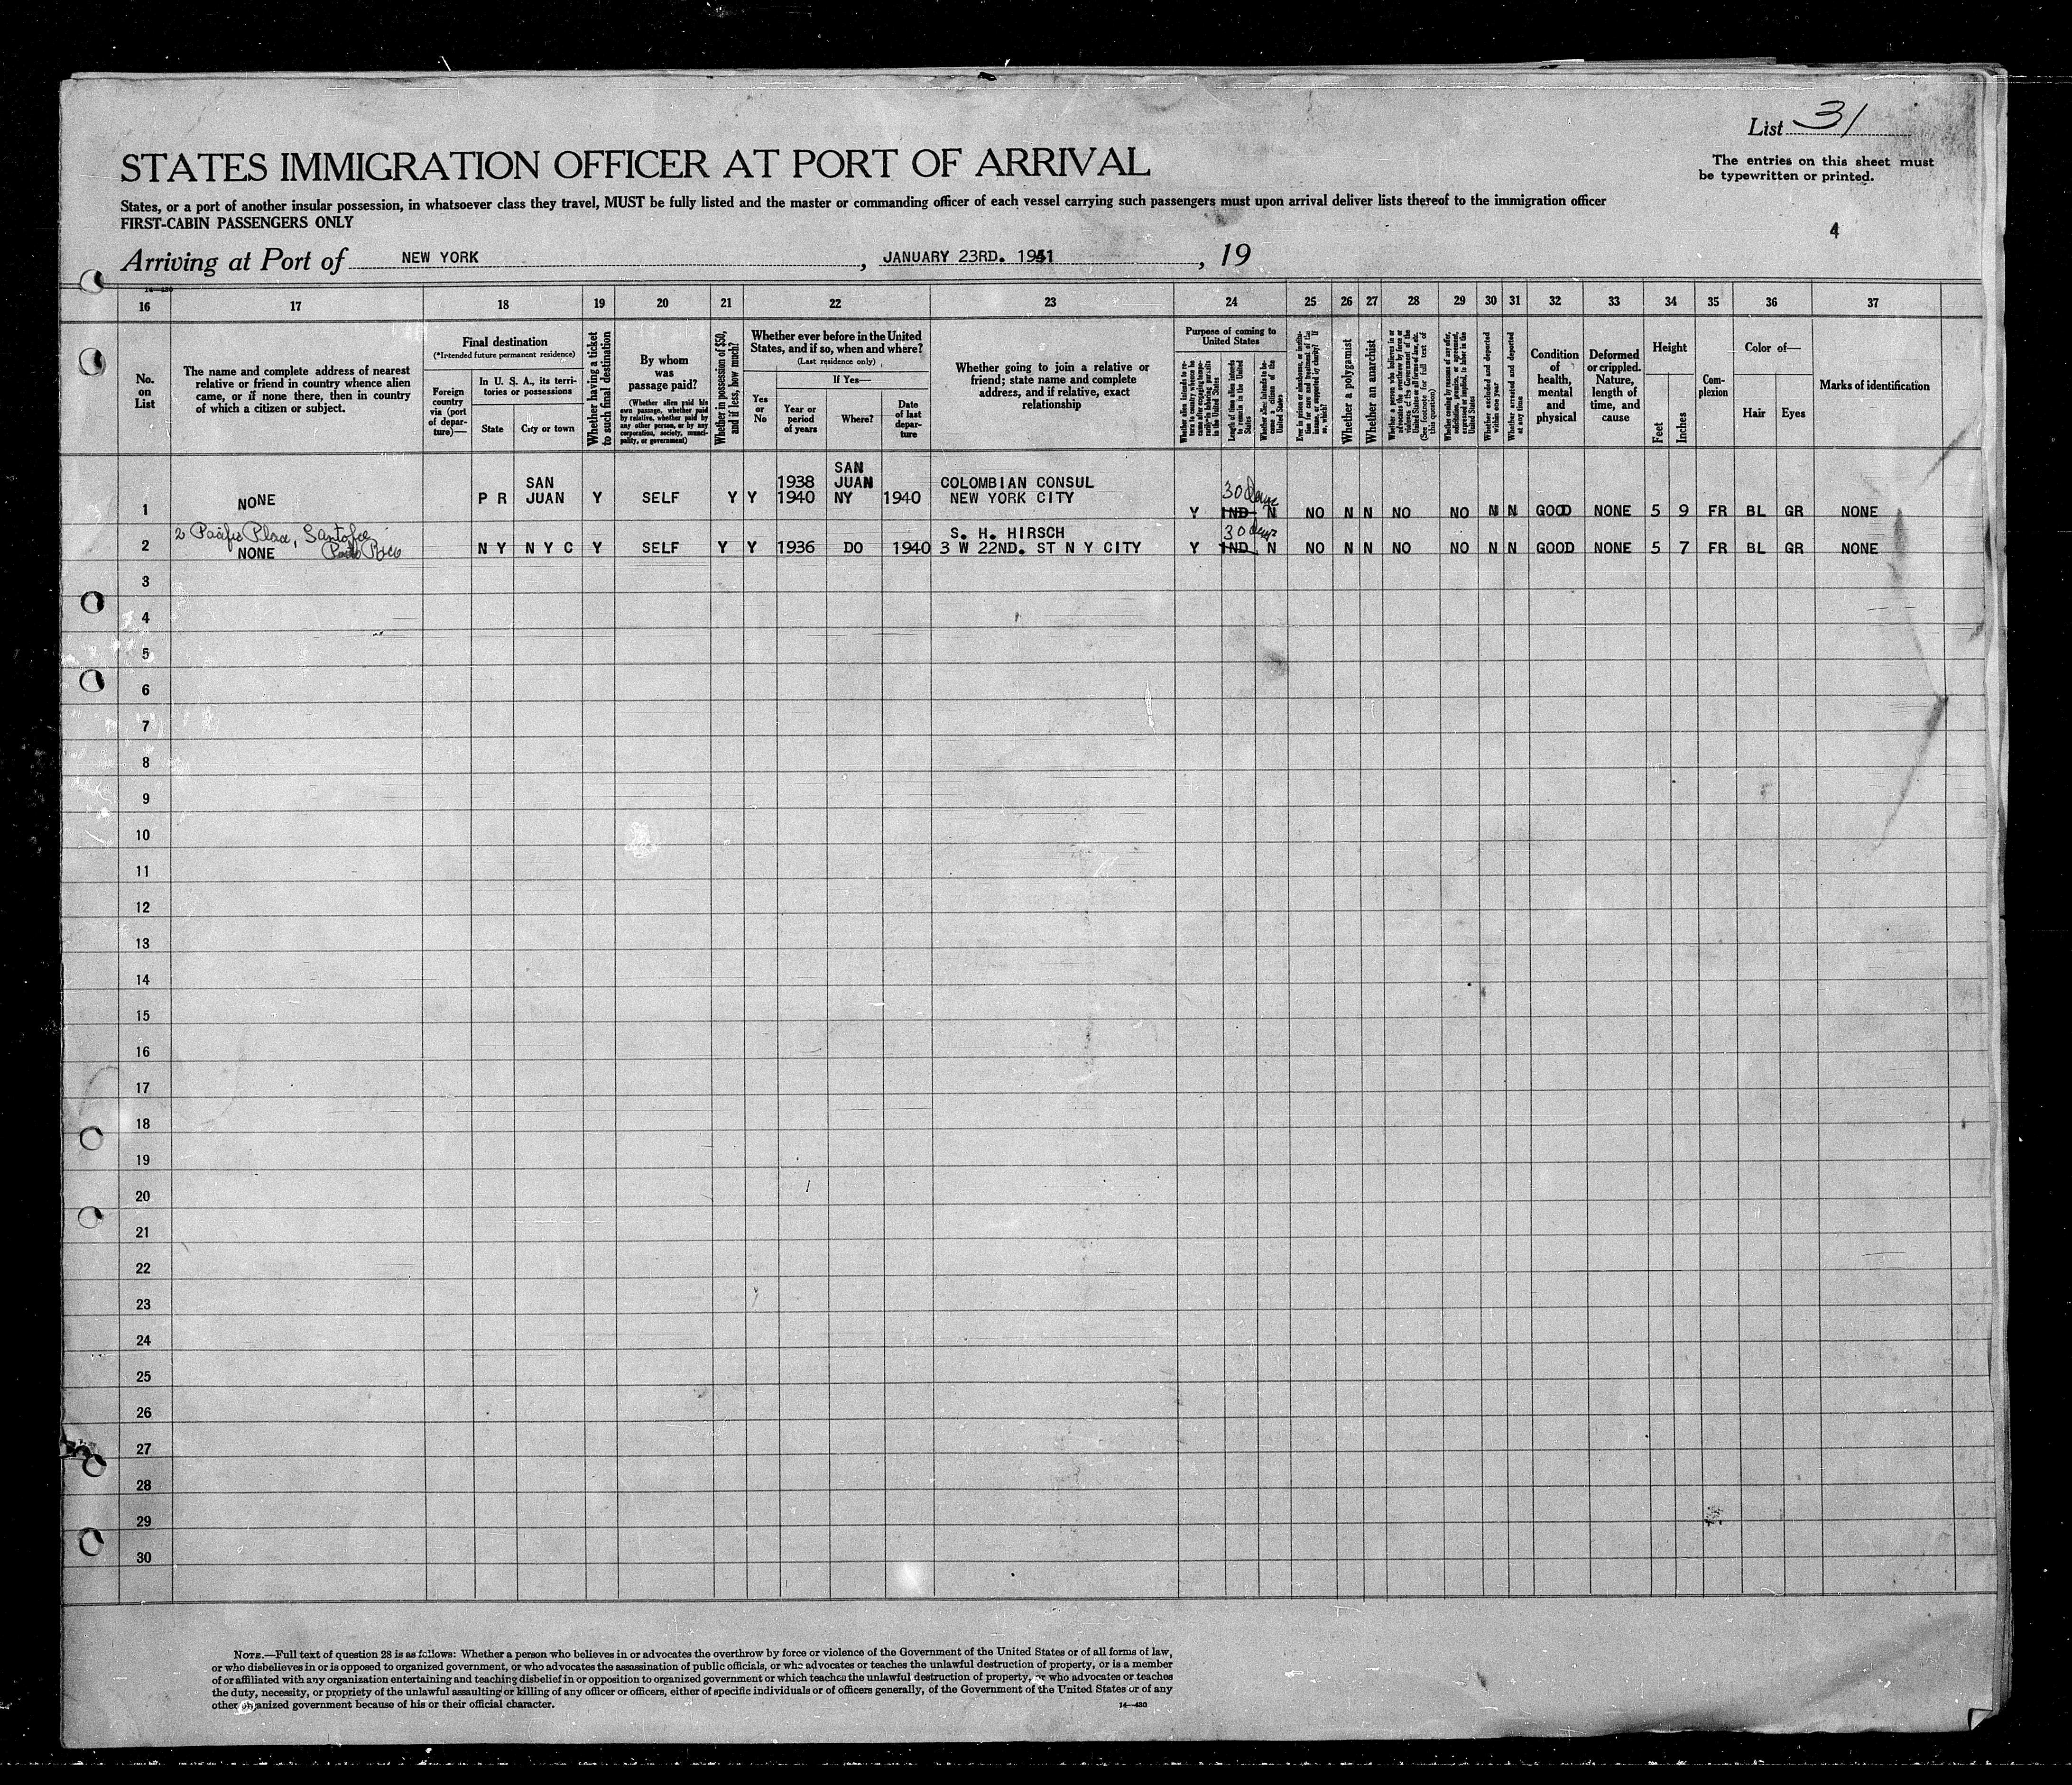 List 31
STATES IMMIGRATION OFFICER AT PORT OF ARRIVAL
The entries on this sheet must
be typewritten or printed.
States, or a port of another insular possession, in whatsoever class they travel, MUST be fully listed and the master or commanding officer of each vessel carrying such passengers must upon arrival deliver lists thereof to the immigration officer
FIRST-CABIN PASSENGERS ONLY
4
Arriving at Port of NEW YORK, JANUARY 23RD. 1941, 19
16 17 18 19 20 21 22 23 24 25 26 27 28 29 30 31 32 33 34 35 36 37
No.
on
List
The name and complete address of nearest
relative or friend in country whence alien
came, or if none there, then in country
of which a citizen or subject.
Final destination
(*Intended future permanent residence)
Foreign
country
via (port
of depar-
ture)—
In U. S. A., its terri-
tories or possessions
State
City or town
Whether having a ticket
to such final destination
By whom
was
passage paid?
(Whether alien paid his
own passage, whether paid
by relative, whether paid by
any other person, or by any
corporation, society, munici-
pality, or government)
Whether in possession of $50,
and if less, how much?
Whether ever before in the United
States, and if so, when and where?
(Last residence only)
Yes
or
No
If Yes—
Year or
period
of years
Where?
Date
of last
depar-
ture
Whether going to join a relative or
friend; state name and complete
address, and if relative, exact
relationship
Purpose of coming to
United States
Length of time alien intends
to remain in the United
States
Whether alien intends to be-
come a citizen of the
United States
Whether a polygamist
Whether an anarchist
Whether excluded and deported
within one year
Whether arrested and deported
at any time
Condition
of
health,
mental
and
physical
Deformed
or crippled.
Nature,
length of
time, and
cause
Height
Feet
Inches
Com-
plexion
Color of—
Hair
Eyes
Marks of identification
1 NONE P R SAN JUAN Y SELF Y Y 1938 1940 SAN JUAN NY 1940 COLOMBIAN CONSUL NEW YORK CITY Y 30 days IND N NO N N NO NO N N GOOD NONE 5 9 FR BL GR NONE
2 Pacific Place, Santofee
Porto Rico
2 NONE N Y N Y C Y SELF Y Y 1936 DO 1940 S. H. HIRSCH 3 W 22ND. ST N Y CITY Y 30 days IND N NO N N NO NO N N GOOD NONE 5 7 FR BL GR NONE
3
4
5
6
7
8
9
10
11
12
13
14
15
16
17
18
19
20
21
22
23
24
25
26
27
28
29
30
NOTE.—Full text of question 28 is as follows: Whether a person who believes in or advocates the overthrow by force or violence of the Government of the United States or of all forms of law,
or who disbelieves in or is opposed to organized government, or who advocates the assassination of public officials, or who advocates or teaches the unlawful destruction of property, or is a member
of or affiliated with any organization entertaining and teaching disbelief in or opposition to organized government or which teaches the unlawful destruction of property, or who advocates or teaches
the duty, necessity, or propriety of the unlawful assaulting or killing of any officer or officers, either of specific individuals or of officers generally, of the Government of the United States or of any
other organized government because of his or their official character.
14—430